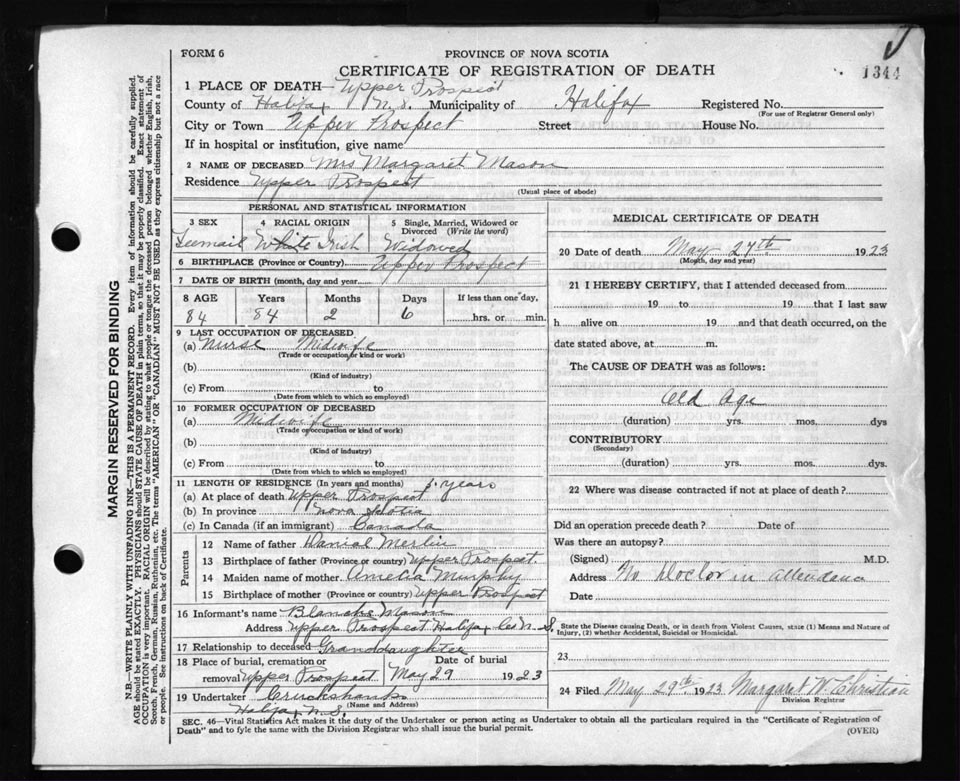 1344
FORM 6
PROVINCE OF NOVA SCOTIA
CERTIFICATE OF REGISTRATION OF DEATH
1 PLACE OF DEATH— Upper Prospect
County of Halifax N.S. Municipality of Halifax Registered No.
(For use of Registrar General only)
City or Town Upper Prospect Street House No.
If in hospital or institution, give name
2 NAME OF DECEASED Mrs Margaret Mason
Residence Upper Prospect
(Usual place of abode)
PERSONAL AND STATISTICAL INFORMATION
3 SEX Feemail
4 RACIAL ORIGIN White Irish
5 Single, Married, Widowed or Divorced (Write the word) Widowed
6 BIRTHPLACE (Province or Country) Upper Prospect
7 DATE OF BIRTH (month, day and year)
8 AGE Years Months Days If less than one day,
84 84 2 6 hrs. or min.
9 LAST OCCUPATION OF DECEASED
(a) Nurse Midwife
(Trade or occupation or kind or work)
(b)
(Kind of industry)
(c) From to
(Date from which to which so employed)
10 FORMER OCCUPATION OF DECEASED
(a) Midwife
(Trade or occupation or kind of work)
(b)
(Kind of industry)
(c) From to
(Date from which to which so employed)
11 LENGTH OF RESIDENCE (In years and months) years
(a) At place of death Upper Prospect
(b) In province Nova Scotia
(c) In Canada (if an immigrant) Canada
Parents
12 Name of father Danial Merlin
13 Birthplace of father (Province or country) Upper Prospect.
14 Maiden name of mother Amelia Murphy
15 Birthplace of mother (Province or country) Upper Prospect
16 Informant's name Blanche Mason
Address Upper Prospect Halifax Co N.S.
17 Relationship to deceased Granddaughter
18 Place of burial, cremation or removal Upper Prospect Date of burial May 29 1923
19 Undertaker Cruikshanks
(Name and Address)
Halifax N.S.
MEDICAL CERTIFICATE OF DEATH
20 Date of death May 27th 1923
(Month, day and year)
21 I HEREBY CERTIFY, that I attended deceased from
19 to 19 that I last saw
h alive on 19 and that death occurred, on the
date stated above, at m.
The CAUSE OF DEATH was as follows:
Old Age
(duration) yrs. mos. dys
CONTRIBUTORY
(Secondary)
(duration) yrs. mos. dys.
22 Where was disease contracted if not at place of death?
Did an operation precede death? Date of
Was there an autopsy?
(Signed) M.D.
Address No Doctor in attendance
Date
State the Disease causing Death, or in death from Violent Causes, state (1) Means and Nature of
Injury, (2) whether Accidental, Suicidal or Homicidal.
23
24 Filed May 29th 1923 Margaret W. Christian
Division Registrar
SEC. 46—Vital Statistics Act makes it the duty of the Undertaker or person acting as Undertaker to obtain all the particulars required in the "Certificate of Registration of
Death" and to fyle the same with the Division Registrar who shall issue the burial permit.
(OVER)
MARGIN RESERVED FOR BINDING
N.B.—WRITE PLAINLY WITH UNFADING INK—THIS IS A PERMANENT RECORD. Every item of information should be carefully supplied.
AGE should be stated EXACTLY. PHYSICIANS should STATE CAUSE OF DEATH in plain terms, so that it may be properly classified. Exact statement of
OCCUPATION is very important. RACIAL ORIGIN will be described by stating to what people or tongue the deceased person belonged whether English, Irish,
Scotch, French, German, Russian, Ruthenian, etc. The terms "AMERICAN" or "CANADIAN" MUST NOT BE USED as they express citizenship but not a race
or people. See instructions on back of Certificate.